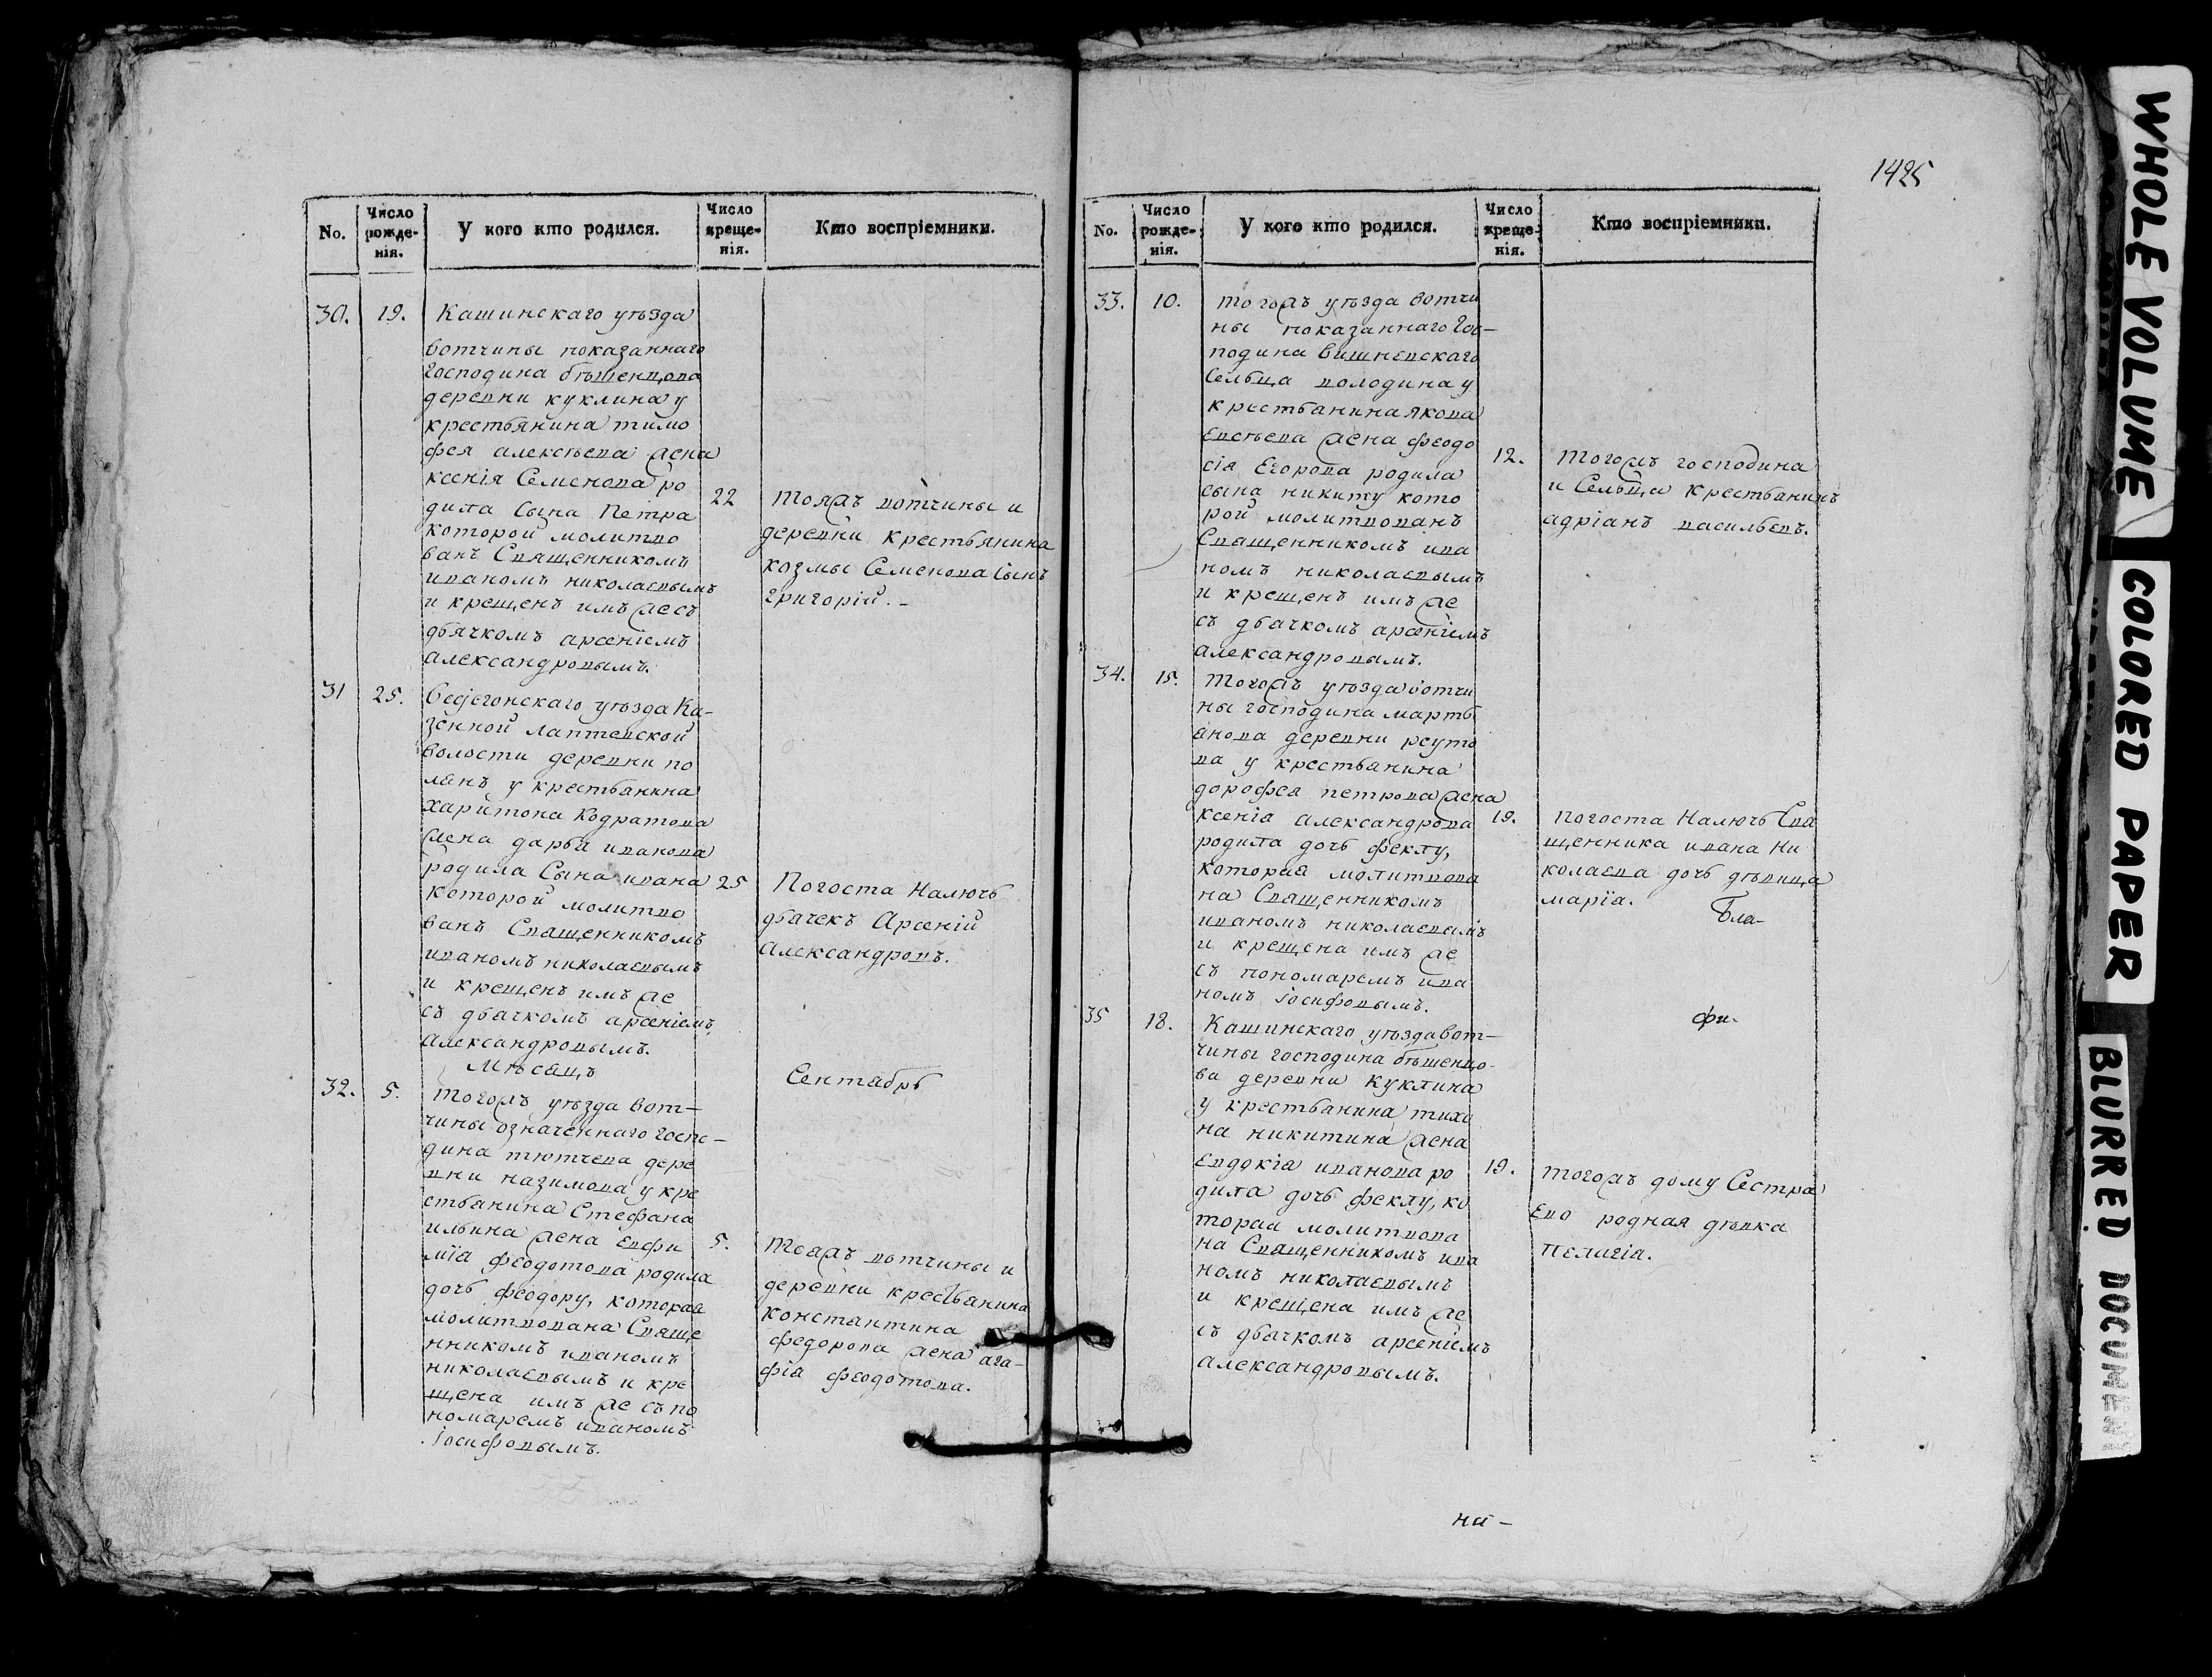 No.
Число рожде-нія.
У кого кто родился.
Число креще-нія.
Кто воспріемники.
30. 19. Кашинскаго уѣзда
вотчины показаннаго
Господина бѣшенцова
деревни куклина у
крестьянина тимо
фея алексѣева жена
ксенія Семенова ро
дила Сына Петра
которой молитво
ванъ Священникомъ
иваномъ николаевымъ
и крещенъ имъ же съ
дьячкомъ арсеніемъ
александровымъ.
22 тояжъ вотчины и
деревни крестьянина
козмы Семенова Сынъ
григорій.
31 25. весьегонскаго уѣзда Ка-
зенной лаптевской
волости деревни по
лянъ у крестьянина
харитона Кодратова
жена дарья иванова
родила Сына ивана
которой молитво
ванъ Священникомъ
иваномъ николаевымъ
и крещенъ имъ же
съ дьячкомъ арсеніемъ
александровымъ.
25 Погоста Налючь
дьячекъ Арсеній
александровъ.
Мѣсяцъ Сентябрь
32. 5. тогожъ уѣзда вот-
чины означеннаго госпо-
дина тютчева дере
вни назимова у кре
стьянина Стефана
ильина жена Евфи
мїа феодотова родила
дочь феодору, которая
молитвована Свяще
нникомъ иваномъ
николаевымъ и кре
щена имъ же съ по
номаремъ иваномъ
іосифовымъ.
5. тояжъ вотчины и
деревни крестьянина
константина
федорова жена ага-
фіа феодотова.
1425
No.
Число рожде-нія.
У кого кто родился.
Число креще-нія.
Кто воспріемники.
33. 10. тогожъ уѣзда вотчи
ны показаннаго Гос-
подина вишневскаго
Сельца володина у
крестьянина якова
Евсѣева жена феодо
сія Егорова родила
сына никиту кото
рой молитвованъ
Священникомъ ива
номъ николаевымъ
и крещенъ имъ же
съ дьячкомъ арсеніемъ
александровымъ.
12. тогожъ господина
и Сельца крестьянинъ
адріанъ васильевъ.
34. 15. тогожъ уѣзда вотчи
ны господина марть
янова деревни реуто
ва у крестьянина
дорофея петрова жена
ксенія александрова
родила дочь феклу,
которая молитвова
на Священникомъ
иваномъ николаевымъ
и крещена имъ же
съ пономаремъ ива
номъ іосифовымъ.
19. погоста Налючь Свя
щенника ивана Ни
колаева дочь дѣвица
марїа.
бла-
фи.
35 18. Кашинскаго уѣзда вот-
чины господина бѣшенцо-
ва деревни Куклина
у крестьянина тихо
на никитина жена
Евдокіа иванова ро
дила дочь феклу, ко
торая молитвова
на Священникомъ ива
номъ николаевымъ
и крещена имъ же
съ дьячкомъ арсеніемъ
александровымъ.
19. тогожъ дому Сестра
Ево родная дѣвка
пелагіа.
на-
WHOLE VOLUME
COLORED PAPER
BLURRED DOCUMEN